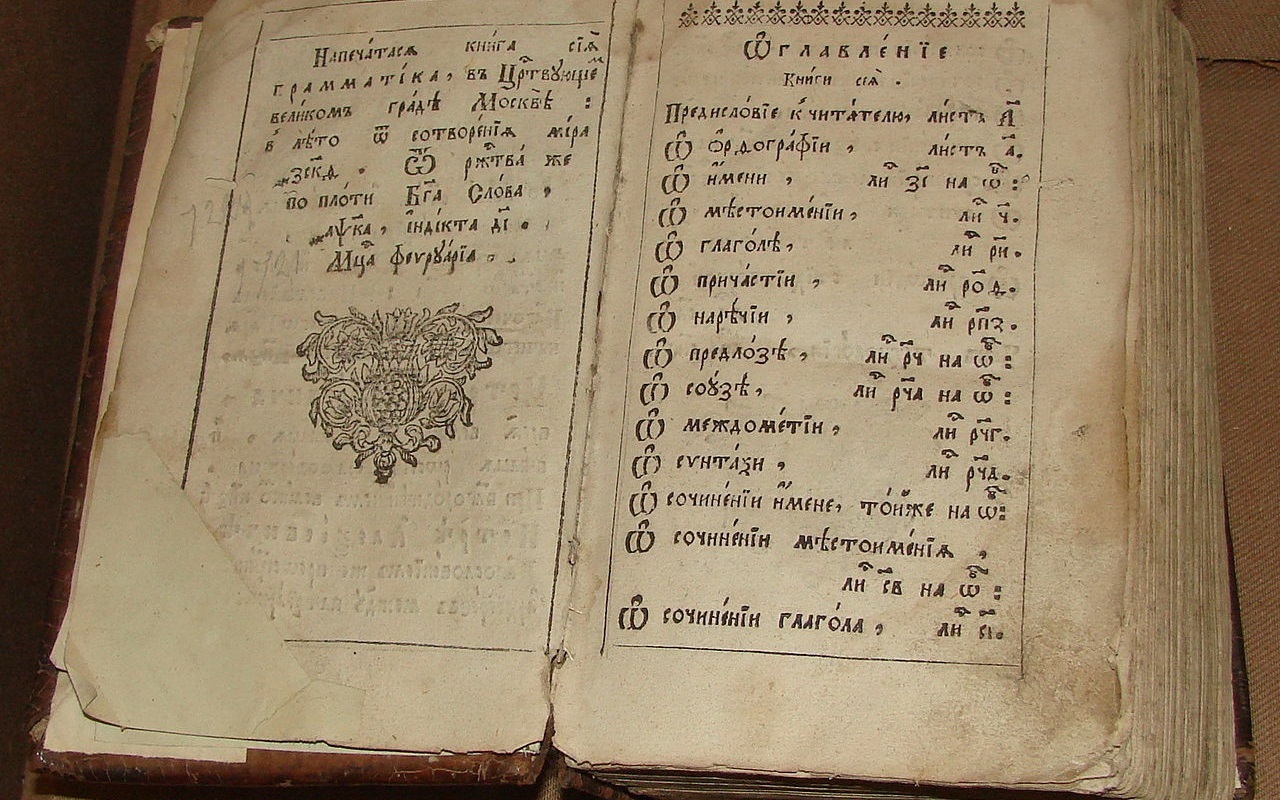 Напеча́тасѧ кни́га сїѧ̀
грамматі́ка, въ Црⷭ҇твующеⷨ
вели́комъ гра́дѣ Москвѣ̀ :
в̾ лѣ́то ѿ сотворе́нїѧ мі́ра
҂зс҃кѳ . Ѿ рж҃тва́ же
по пло́ти Бг҃а Сло́ва ,
҂аѱ҃ка , і҆нді́кта д҃і .
Мц҃а феѵруа́рїа .
Ѡ҆главле́нїе
Кни́ги сеѧ̀ .
Предисло́вїе к̾ чита́телю, ли́стъ а҃
Ѽ ѻ҆рѳогра́фїи , ли́стъ а҃.
Ѽ и҆́мени , лиⷭ҇ з҃і на ѡ҆бⷪ҇ :
Ѽ мѣстоиме́нїи , лиⷭ҇ ч҃.
Ѽ глаго́лѣ , лиⷭ҇ р҃и.
Ѽ прича́стїи , лиⷭ҇ ро҃ѳ.
Ѽ нарѣ́чїи , лиⷭ҇ рп҃з.
Ѽ предло́зѣ , лиⷭ҇ р҃ч на ѡ҆бⷪ҇ :
Ѽ сою́зѣ , лиⷭ҇ рч҃а на ѡ҆бⷪ҇ :
Ѽ междоме́тїи , лиⷭ҇ рч҃г.
Ѽ сѵнта́ѯи , лиⷭ҇ рч҃д.
Ѽ сочине́нїи и҆́мене, то́йже на ѡ҆бⷪ҇ :
Ѽ сочине́нїи мѣстоиме́нїѧ ,
лиⷭ҇ с҃в на ѡ҆бⷪ҇ :
Ѽ сочине́нїи глаго́ла , лиⷭ҇ с҃і.